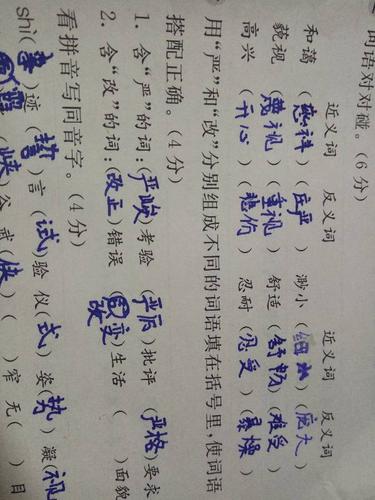 词语对对碰。(6分)
近义词 反义词 近义词 反义词
和蔼 ( ) (庄严) 渺小 (细小) (庞大)
藐视 (蔑视) (重视) 舒适 (舒畅) (难受)
高兴 (开心) (悲伤) 忍耐 (忍受) (暴燥)
用“严”和“改”分别组成不同的词语填在括号里,使词语
搭配正确。(4分)
1. 含“严”的词:(严峻)考验 (严厉)批评 (严格)要求
2. 含“改”的词:(改正)错误 (改变)生活 ( )面貌
看拼音写同音字。(4分)
shì(事)迹 (誓)言 (试)验 仪(式) 姿(势) 凝(视
(峡)谷 武(侠) ( )窄 无( ) 目